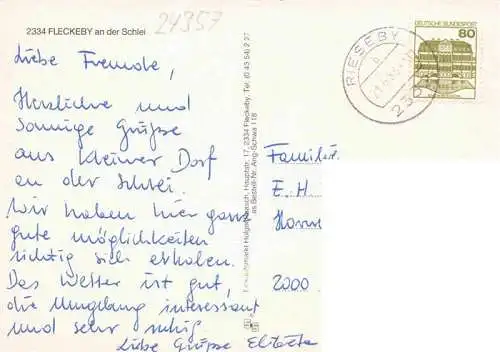 2334 FLECKEBY an der Schlei
24357
Liebe Fremde,
Herzliche und
sonnige Grüsse
aus kleiner Dorf
an der Schlei.
Wir haben hier ganz
gute möglichkeiten
richtig sich erholen.
Das Wetter ist gut,
die Umgebung interessant
und sehr ruhig
Liebe Grüsse
Hauptstr. 17, 2334 Fleckeby, Tel. (0 43 54) 2 27
Bestell-Nr. Ang-Schwa 118
RIESEBY
DEUTSCHE BUNDESPOST
80
Familie
E. H.
2000